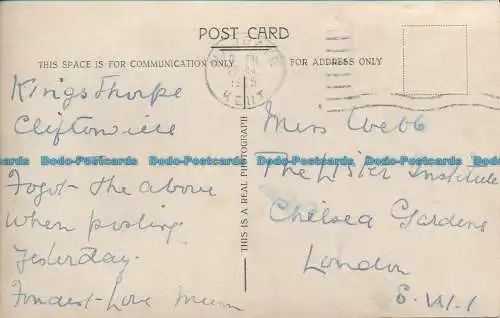 POST CARD
THIS SPACE IS FOR COMMUNICATION ONLY
FOR ADDRESS ONLY
KENT
Kingsthorpe
Cliftonville
Fogot - the above
when posting
yesterday.
Fondest - Love Mum
THIS IS A REAL PHOTOGRAPH
Miss Webb
The Lister Institute
Chelsea Gardens
London
S.W.1
Bodo-Postcards Bodo-Postcards Bodo-Postcards Bodo-Postcards Bodo-Postcards